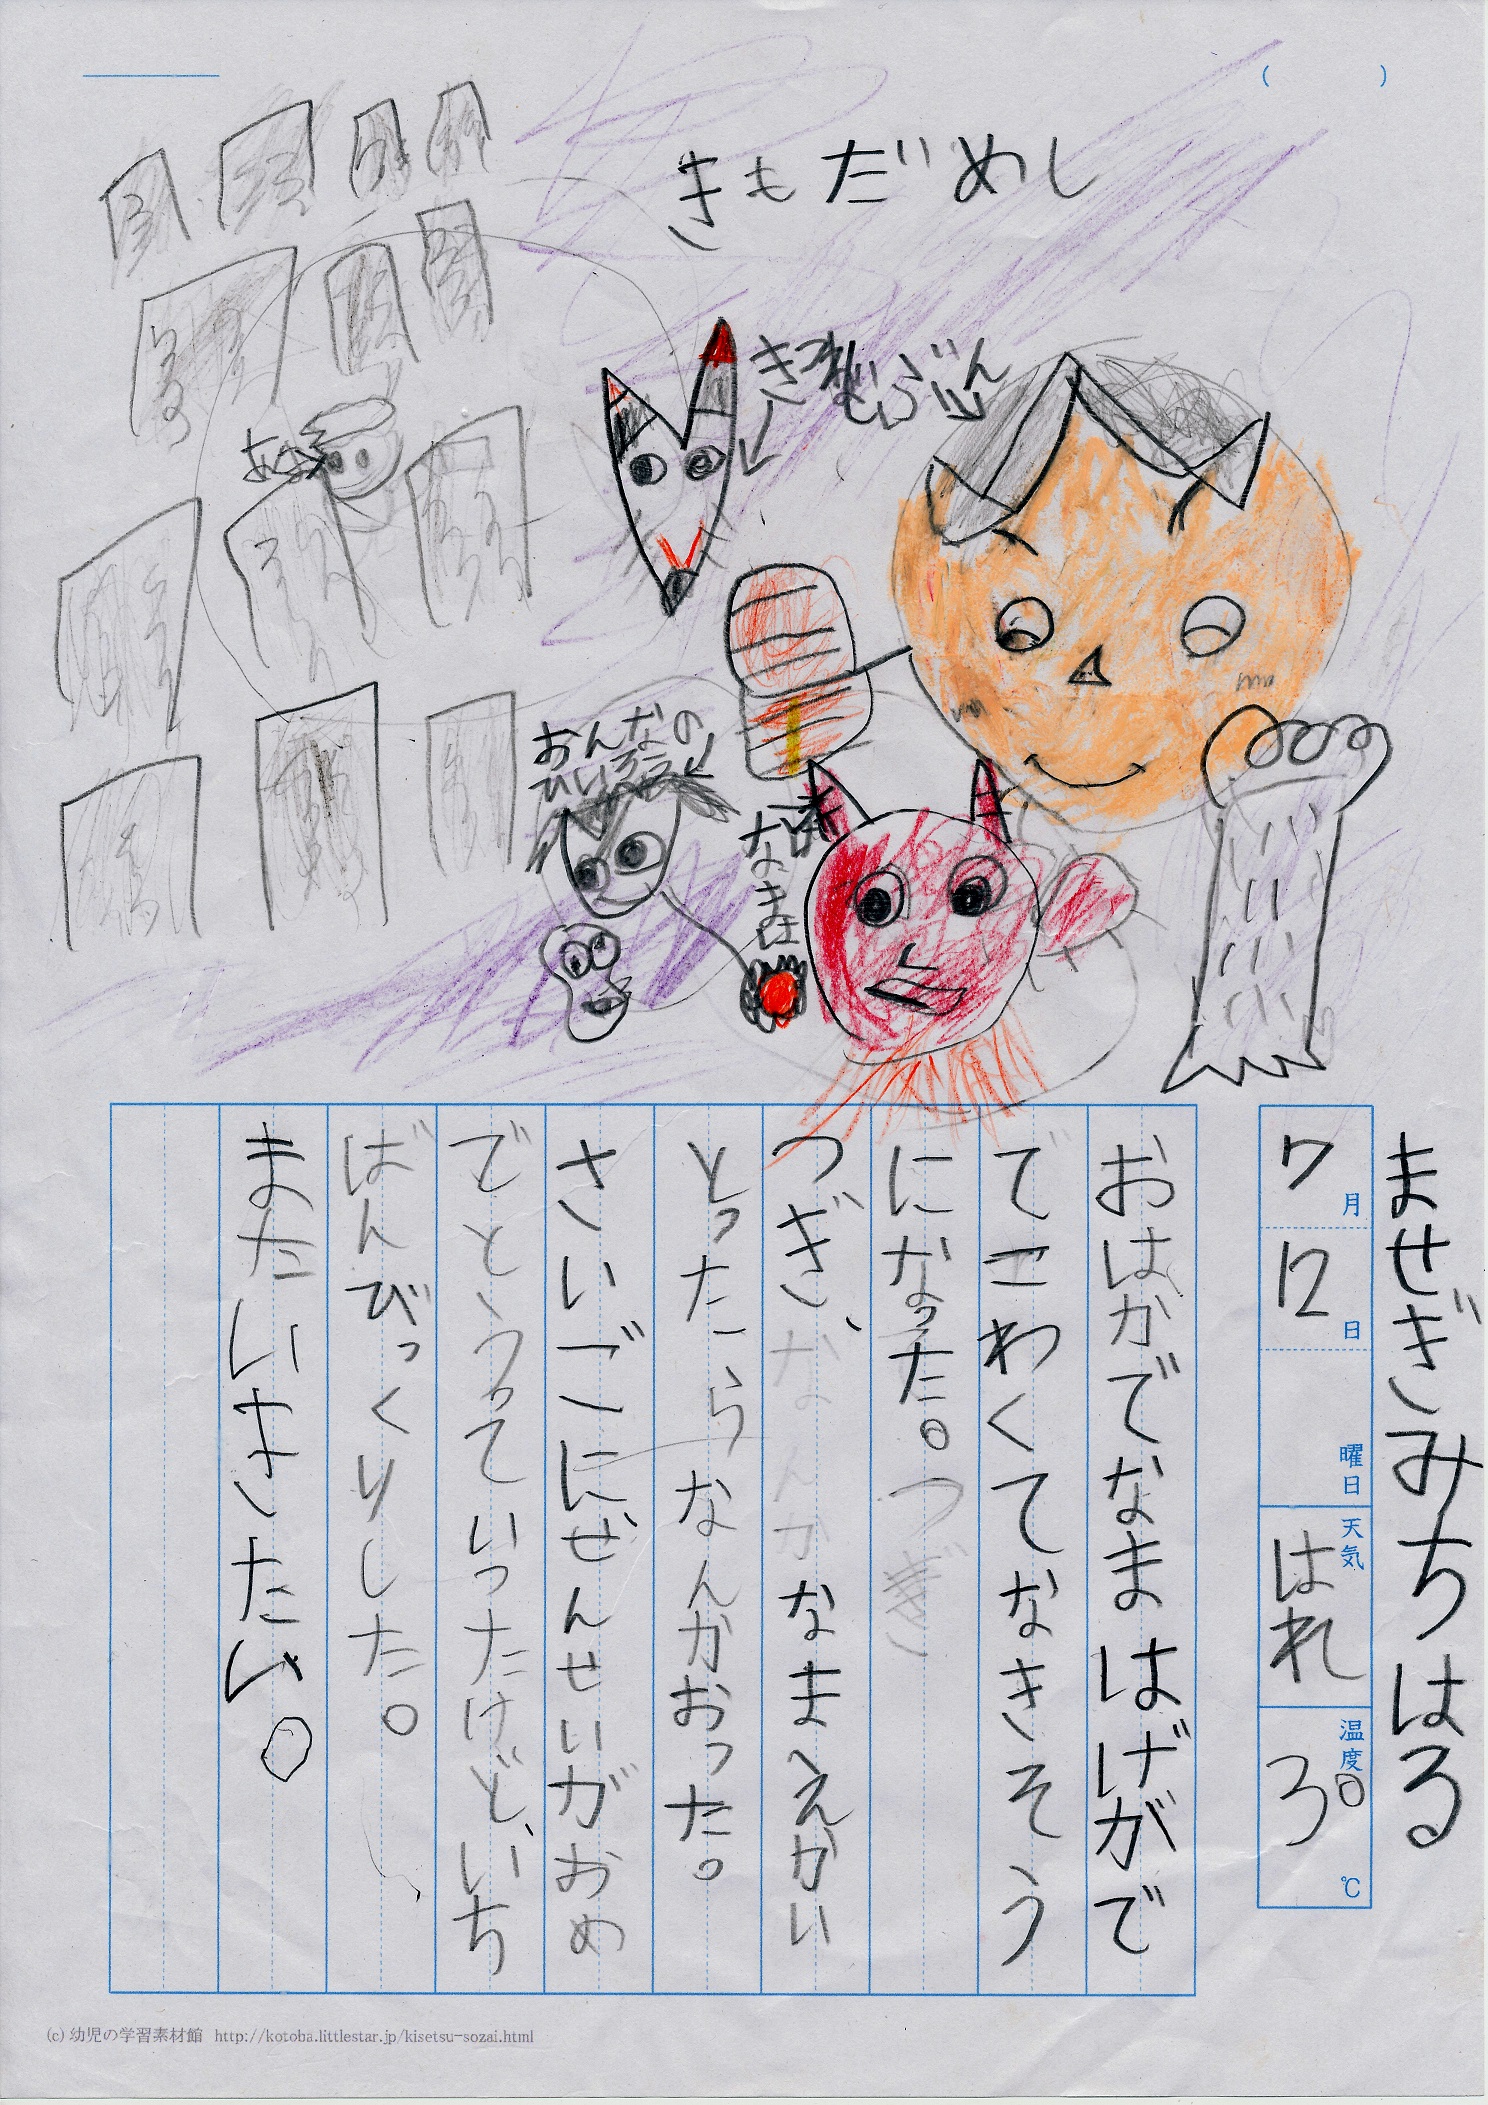 きもだめし
おんなの
なまは
ませぎみちはる
7月
12日
曜日
天気
はれ
温度
30℃
おはかでなまはげがで
でこわくてなきそう
になった。つぎ
つぎ、なんかなまえかい
とったらなんかおった。
さいごにぜんせいがおめ
でとうっていったけど、いち
ばんびっくりした。
またいきたい。
(c) 幼児の学習素材館 http://kotoba.littlestar.jp/kisetsu-sozai.html